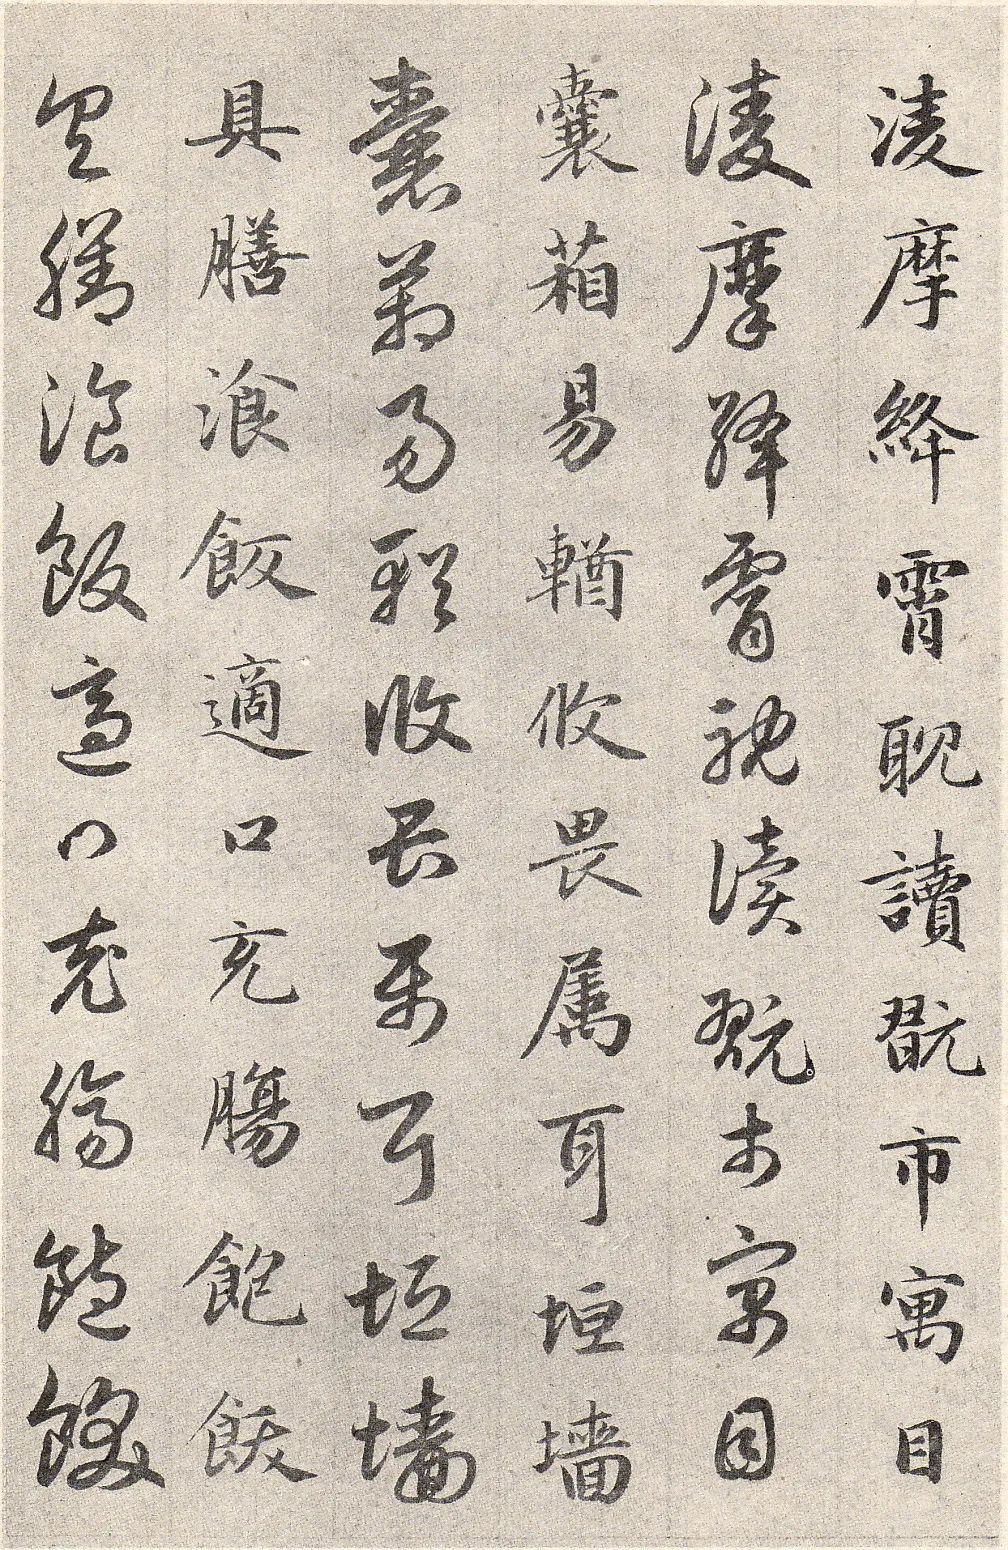 凌摩絳霄耽讀翫市寓目
凌摩絳霄耽讀翫市寓目
囊箱易輶攸畏属耳垣墻
囊箱易輶攸畏属耳垣墻
具膳飡飯適口充腸飽飫
具膳飡飯適口充腸飽飫